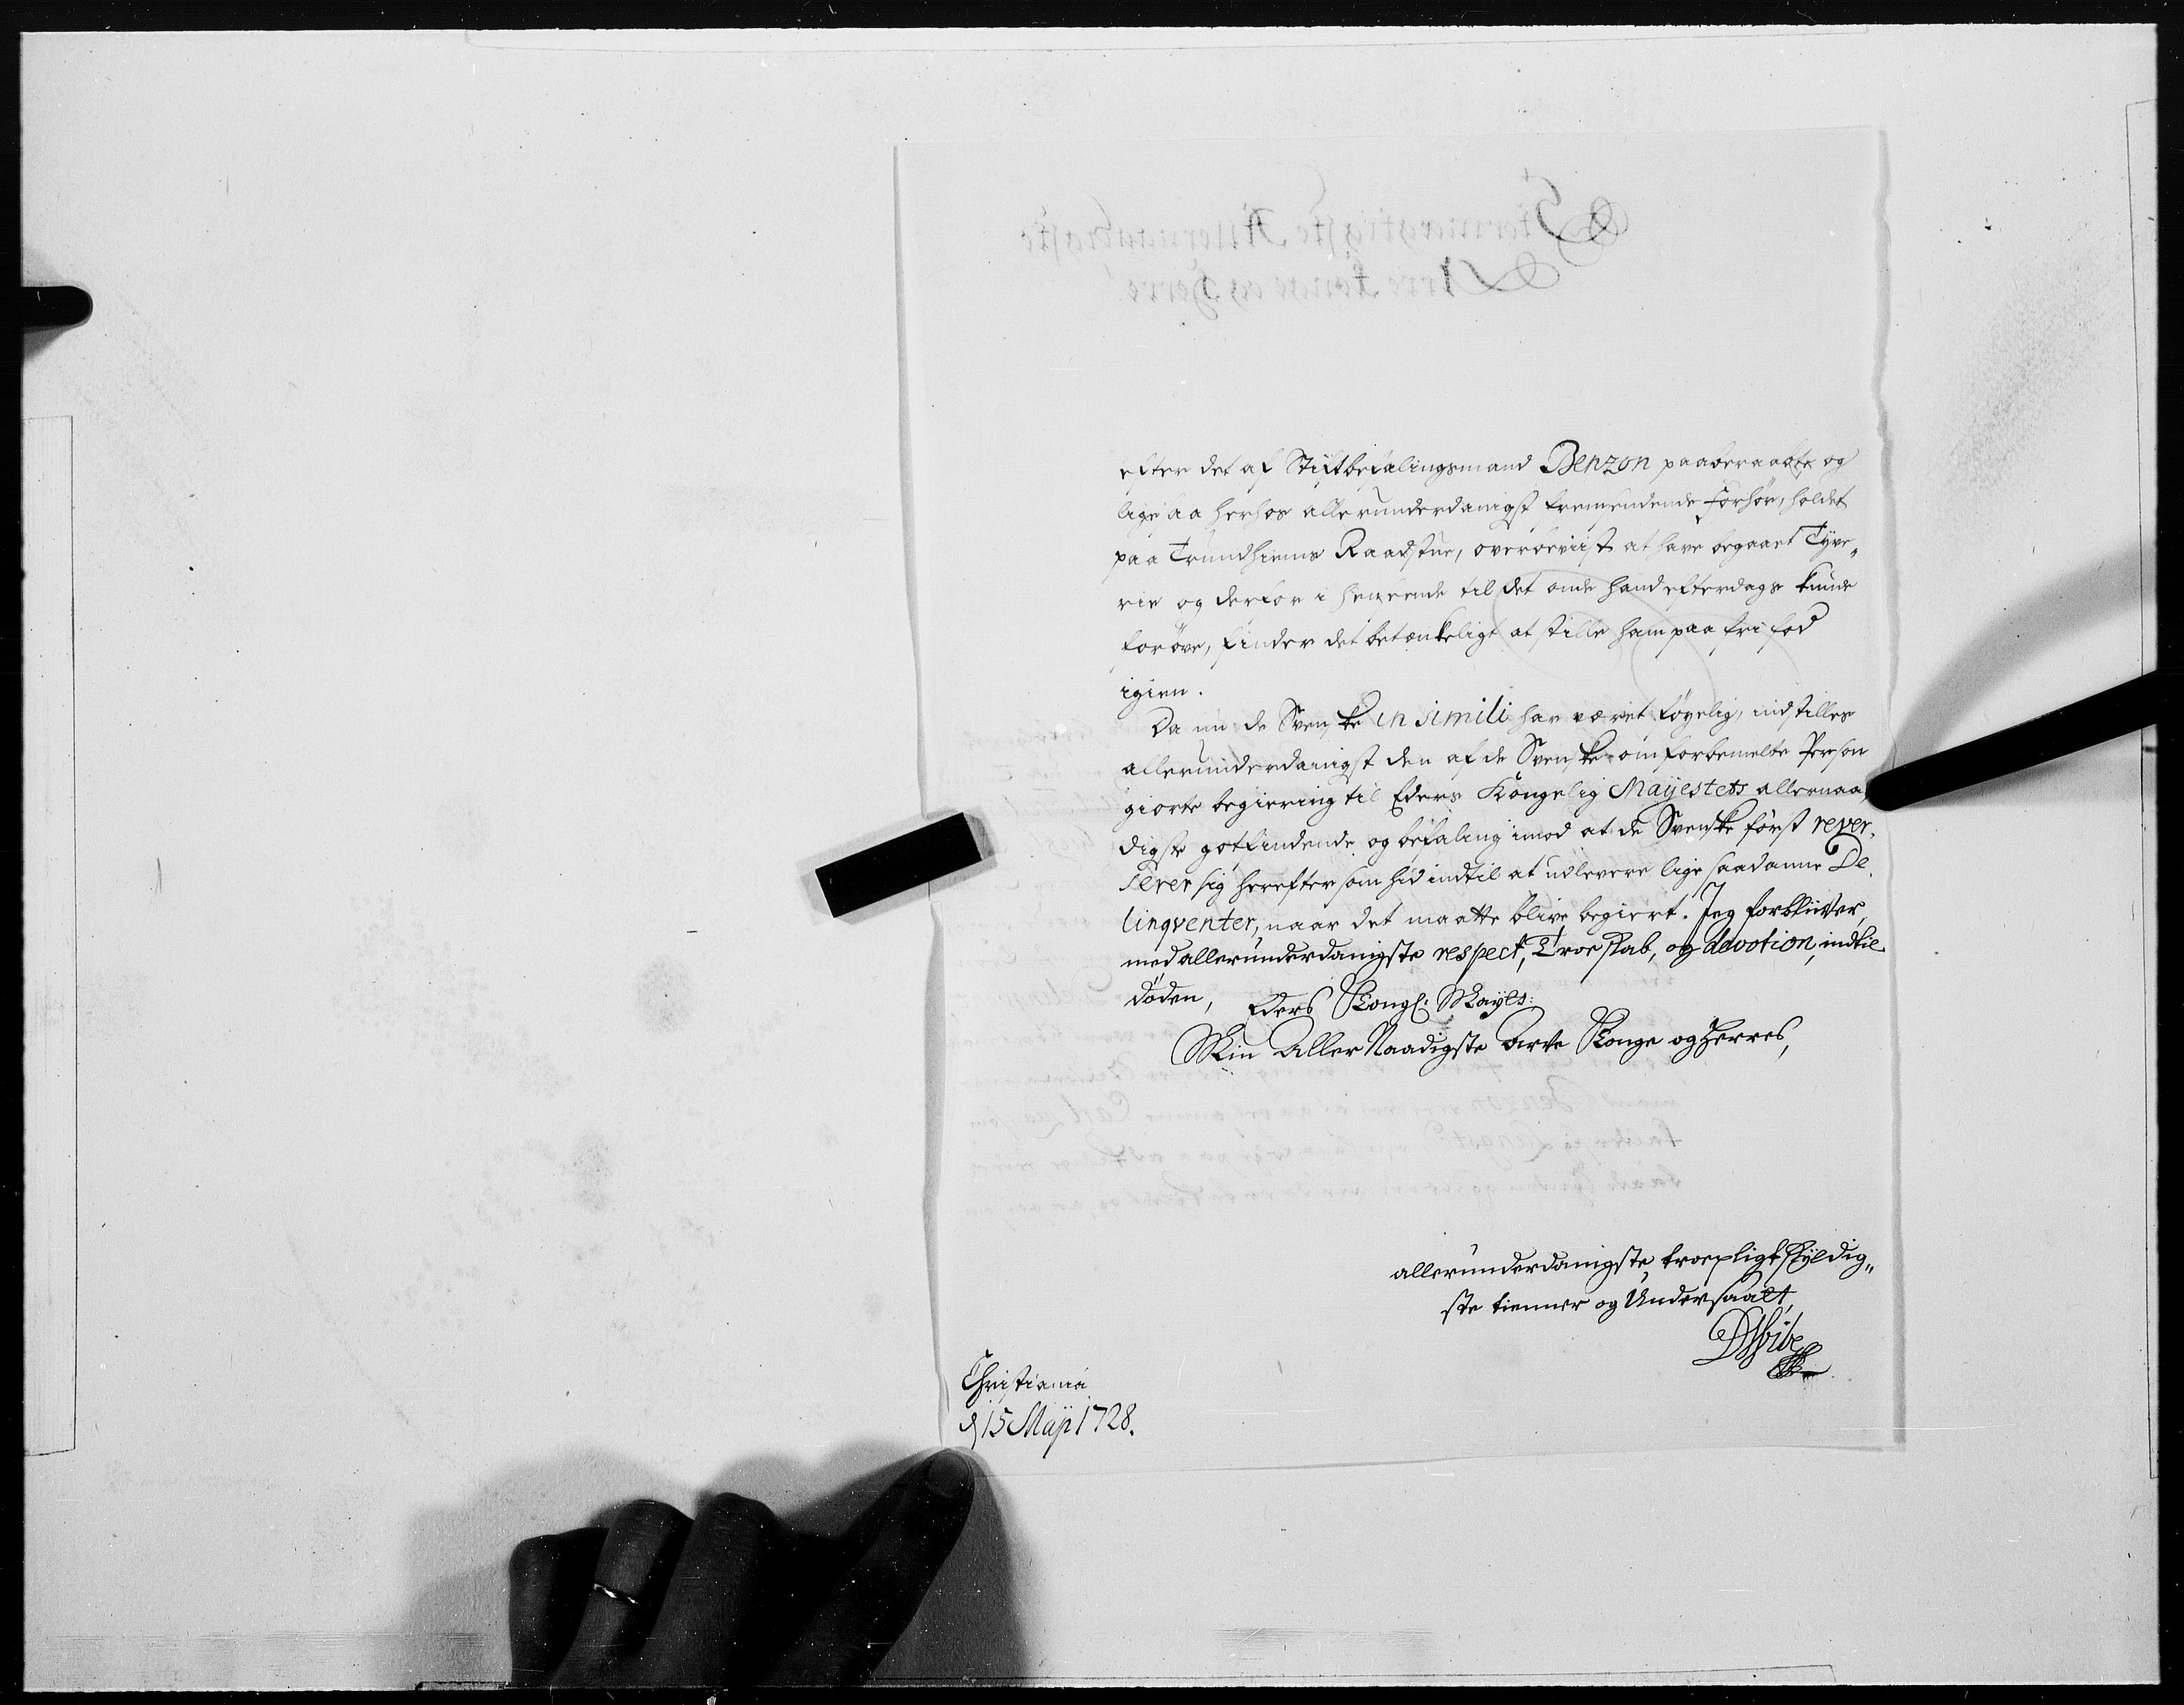 efter det af Stiftbefalingsmand Benzon paaberaabte og
ligesaa herhos allerunderdanigst fremsendende Forhör, holdet
paa Trundhiems Raadstue, overbeviist at have begaaet Tyve„
rie og derfor i henseende til det onde hand efterdags kunde
forøve, finder det betænkeligt at stille ham paa fri fod
igien.
Da nu de Svenske in simili har været föyelig, indstilles
allerunderdanigst den af de Svenske om forbemelte Person
giorte begiering til Eders Kongelig Mayestets allernaa
digste gotfindende og befaling imod at de Svenske först rever,
serer sig herefter som hid indtil at udlevere lige saadanne De,
linqventer, naar det maatte blive begiert. Jeg forbliver,
med allerunderdanigste respect, Troeskab, og devotion, indtil
döden,
Eders Kongl: Mayts:
Min Aller Naadigste Arve Konge og Herres,
allerunderdanigste troepligtskyldig„
ste tienner og Undersaatt,
DWibe
Christiania
d 15 Maji 1728.